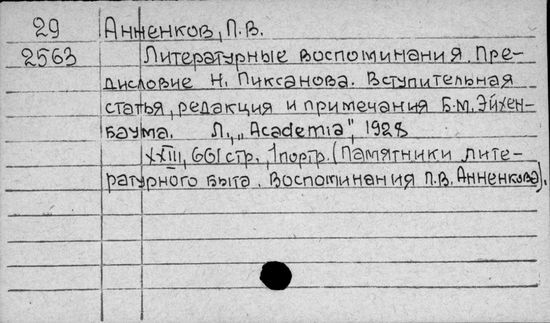 29 Анненков, П.В.
2563 Литературные воспоминания. Пре-
дисловие Н. Пиксанова. Вступительная
статья, редакция и примечания Б.М. Эйхен-
баума. Л., „Academia", 1928
XXIII, 661 стр., 1 портр. (Памятники лите-
ратурного быта. Воспоминания П.В. Анненкова).